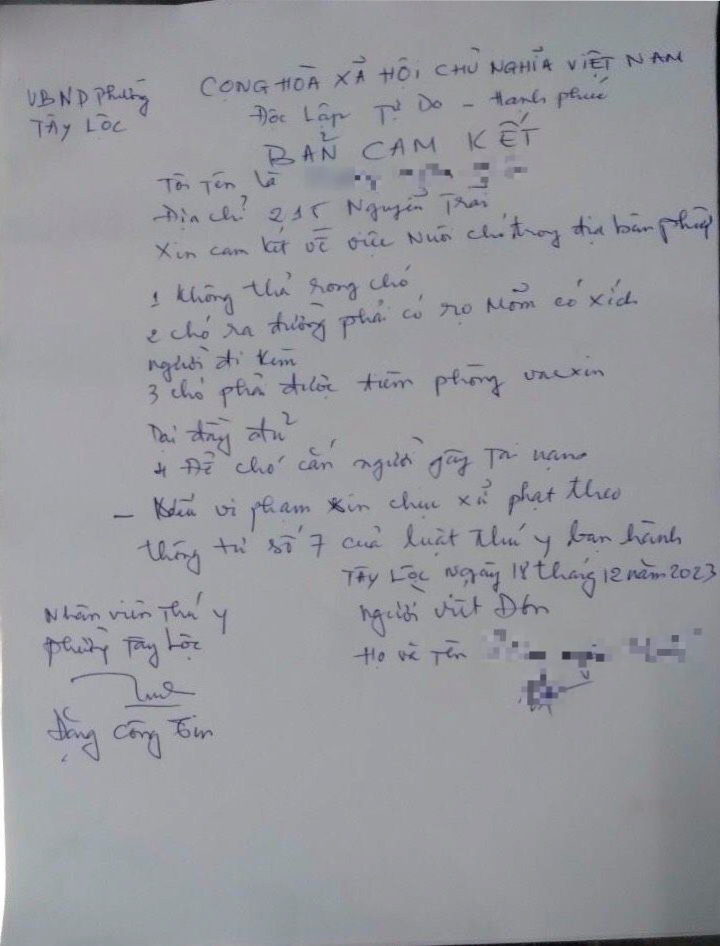 UBND phường
TÂY LỘC
CỘNG HÒA XÃ HỘI CHỦ NGHĨA VIỆT NAM
Độc Lập Tự Do - Hạnh phúc
BẢN CAM KẾT
Tôi Tên là
Địa chỉ 215 Nguyễn Trãi
Xin cam kết về việc Nuôi chó trong địa bàn phường
1 Không thả rong chó
2 chó ra đường phải có rọ Mõm có xích
người đi kèm
3 chó phải được tiêm phòng vacxin
Dại đầy đủ
4 Để chó cắn người gây Tai nạn
- Nếu vi phạm xin chịu xử phạt theo
thông tư số 7 của luật thú y ban hành
TÂY LỘC Ngày 18 tháng 12 năm 2023
Nhân viên Thú y
phường Tây Lộc
Đặng Công Tin
người viết Đơn
Họ và Tên